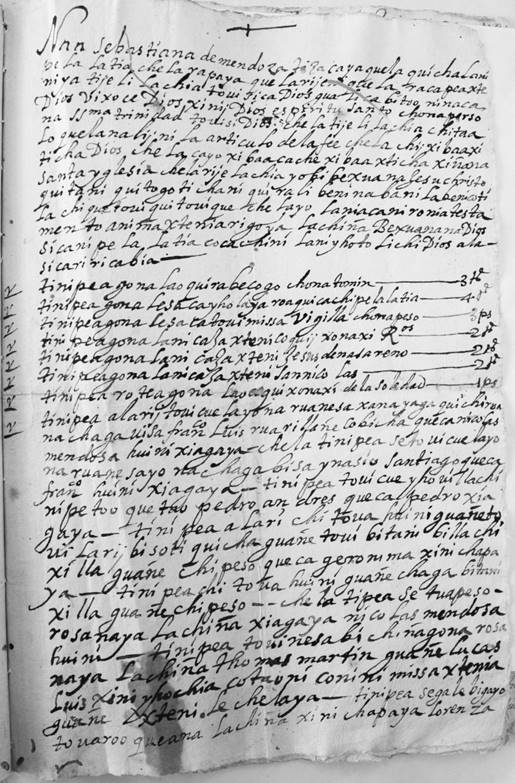 Nan sebastiana de mendoza tiacayaquela quichalani
bela Latia chelarapaya que larijeniguela racapeaxte
niya tije li Lachia touitica Dios qua bitoo ninaca
Dios Vixoce Dios xinij Dios espiritu santo chonaperso
na ssma trinidad touisi Dios chelatije li Lachia chitaa
Loquelanalij ni La articulo de la fee chela chij xibaa xi
ticha Dios che La cayo xibaa cache xibaaxticha xiñana
santa yglesia chelarije Lachia yobi bexuana Jesu christo
quitani quitogoti chani quira li benina bani Lapenitoti
La chi que toui quitouique che layo Laniacani roniatesta
mento anima xteni arigoya Lachiña Bexuanana Dios
sicani pela Latia cocachini Lani yhoto Lichi Dios ala
sicari ricabia
tinipea gona lao quirabecogo chonatomin 3 tS
tinipea gona lesaca yholaya roaquicachipelalatia 4 ps
tinipea gona lesaca toui missa Vigilia chonapeso 3 ps
tinipea gona Lani casa xteni coquij xonaxi Ros 2 ps
tinipea gona Lani Casa xteni Jesus denasareno 2 ps
tinipea gona Lani casa xteni sannicolas 2 ps
tinipea roteagona Lao qui xonaxi de la soledad 1 ps
tinipea alarij toui cue layona ruanesa xana yaga quichiruu
nachaga Visa franco Luis ruarilane cobicha queca nicolas
mendosa huini xiagaya chela tinipea setoui cue Layo
na ruane sayo nachaga bisa ynasio santiago queca
franco huini xiagaya tinipea toui cue yhouillachi
nipe too que tao pedro andres queca pedro xia
gaya tinipea alari chitoua huini guañeto
ui Larij bisoti quicha guane toui bitani billa chi
xilla guañe chipeso queca geronima xini chapa
ya tinipea chi toua huini guañe chaga bitani
xilla guañe chi peso che la tipea se tuapeso
rosanaya Lachiña xiagaya nicolas mendosa
huini tinipea touinesabi chinagona rosa
naya Lachiña thomas martin guañe Lucas
Luis xini yhochia cotaoni conini missa xtenia
guañe xteni le chelaya tinipea segale bigayo
touaroo queana Lachiña xini chapaya Lorenza